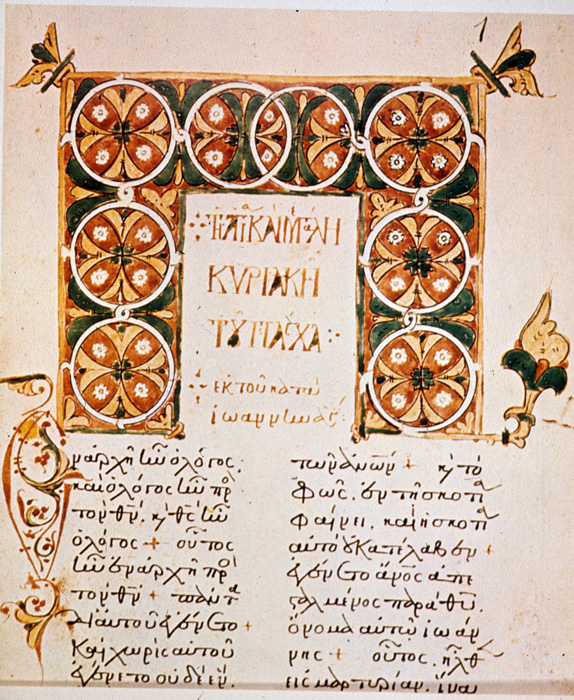 1
ΤΗ ΑΓΙ ΚΑΙ ΜΕΓΑΛΗ
ΚΥΡΙΑΚΗ
ΤΟΥ ΠΑΣΧΑ
ἐκ τοῦ κατὰ
ἰωάννην
ν ἀρχῆ ἦν ὁ λόγος·
καὶ ὁ λόγος ἦν πρ
τὸν θν. κ θς ἦν
ὁ λόγος + οὗτος
ἦν ἐν ἀρχῆ πρ
τὸν θν + πάντα
δι αὐτοῦ ἐγένετο +
καὶ χωρὶς αὐτοῦ
ἐγένετο οὐδὲ ἕν.
τῶν ἀνων + κ τὸ
φῶς. ἐν τῆ σκοτία
φαίνει. καὶ ἡ σκοτία
αὐτὸ οὐ κατέλαβεν +
ἐγένετο ἄνος ἀπε
σταλμένος παρὰ θυ.
ὄνομα αὐτῶ ἰωάν
νης + οὗτος. ἦλθ
εἰς μαρτυρίαν. ἵνα